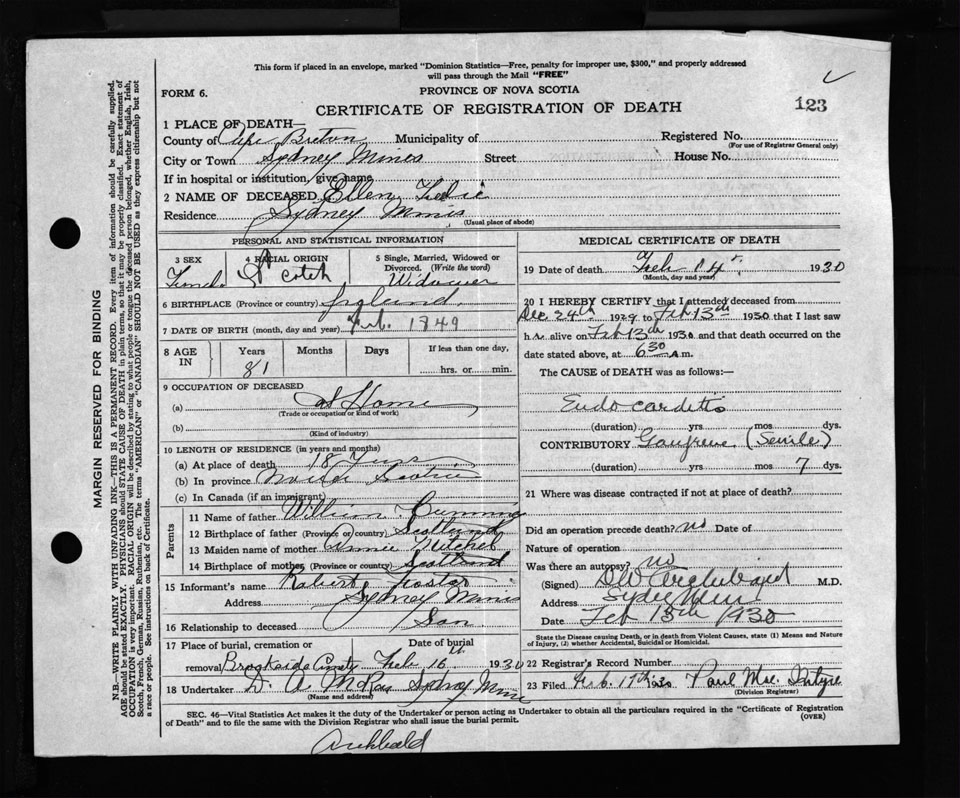 This form if placed in an envelope, marked "Dominion Statistics—Free, penalty for improper use, $300," and properly addressed
will pass through the Mail "FREE"
FORM 6.
PROVINCE OF NOVA SCOTIA
CERTIFICATE OF REGISTRATION OF DEATH
123
1 PLACE OF DEATH—
County of Cape Breton Municipality of Registered No.
(For use of Registrar General only)
City or Town Sydney Mines Street House No.
If in hospital or institution, give name
2 NAME OF DECEASED Ellen
Residence Sydney Mines
(Usual place of abode)
PERSONAL AND STATISTICAL INFORMATION
3 SEX 4 RACIAL ORIGIN 5 Single, Married, Widowed or Divorced. (Write the word)
Scotch Widower
6 BIRTHPLACE (Province or country)
7 DATE OF BIRTH (month, day and year) Feb. 1849
8 AGE IN Years Months Days If less than one day,
81 hrs. or min.
9 OCCUPATION OF DECEASED
(a) at Home
(Trade or occupation or kind of work)
(b)
(Kind of industry)
10 LENGTH OF RESIDENCE (in years and months)
(a) At place of death 18 Years
(b) In province Nova Scotia
(c) In Canada (if an immigrant)
Parents
11 Name of father William
12 Birthplace of father (Province or country) Scotland
13 Maiden name of mother Annie Mitchel
14 Birthplace of mother (Province or country) Scotland
15 Informant's name Robert Foster
Address Sydney Mines
16 Relationship to deceased Son
17 Place of burial, cremation or Date of burial
removal Brookside Feb 16 1930
18 Undertaker D. A. McRae Sydney Mines
(Name and address)
MEDICAL CERTIFICATE OF DEATH
19 Date of death Feb 14 1930
(Month, day and year)
20 I HEREBY CERTIFY that I attended deceased from
Dec. 24th 1929 to Feb 13th 1930 that I last saw
her alive on Feb 13th 1930 and that death occurred on the
date stated above, at 6 30 a m.
The CAUSE of DEATH was as follows:—
Endocarditis
(duration) yrs mos dys.
CONTRIBUTORY Gangrene (Senile)
(duration) yrs mos 7 dys.
21 Where was disease contracted if not at place of death?
Did an operation precede death? no Date of
Nature of operation
Was there an autopsy? no
(Signed) DW Archibald M.D.
Address Sydney Mines
Date Feb 15th 1930
State the Disease causing Death, or in death from Violent Causes, state (1) Means and Nature
of Injury, (2) whether Accidental, Suicidal or Homicidal.
22 Registrar's Record Number
23 Filed Feb. 17th 1930 Paul MacIntyre
(Division Registrar)
SEC. 46—Vital Statistics Act makes it the duty of the Undertaker or person acting as Undertaker to obtain all the particulars required in the "Certificate of Registration
of Death" and to file the same with the Division Registrar who shall issue the burial permit.
(OVER)
Archbald
MARGIN RESERVED FOR BINDING
N.B.—WRITE PLAINLY WITH UNFADING INK—THIS IS A PERMANENT RECORD. Every item of information should be carefully supplied.
AGE should be stated EXACTLY. PHYSICIANS should STATE CAUSE OF DEATH in plain terms, so that it may be properly classified. Exact statement of
OCCUPATION is very important. RACIAL ORIGIN will be described by stating to what people or tongue the deceased person belonged, whether English, Irish,
Scotch, French, German, Russian, Ruthenian, etc. The terms "AMERICAN" or "CANADIAN" SHOULD NOT BE USED as they express citizenship but not
a race or people. See instructions on back of Certificate.